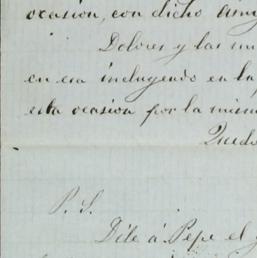 ocasión, con dicho amig
Dolores y las
en esa incluyendo en la
esta ocasión por la mism
Quedo
P. S.
Dile á Pepe el